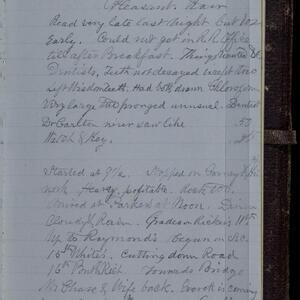 Pleasant. Fair
Read very late last night but up
Early. Could not get in R.R. Office
till after Breakfast. Things wanted
Dentists, Teeth not decayed except two
left Wisdom Teeth. Had both drawn Chloroform
Very large two pronged unusual. Dentist
Dr Carlton never saw like
Watch & Key.
Started at 7½. Stopped on
work, heavy, profitable. Rock 600.
Arrived at Parkers at Noon.
Cloudy & Rain. Grades on Rickers
up to Raymonds. Begun on Sec.
15th Whites. Cutting down Road
16th Towards Bridge
Mr Chase & Wife back. Work is coming